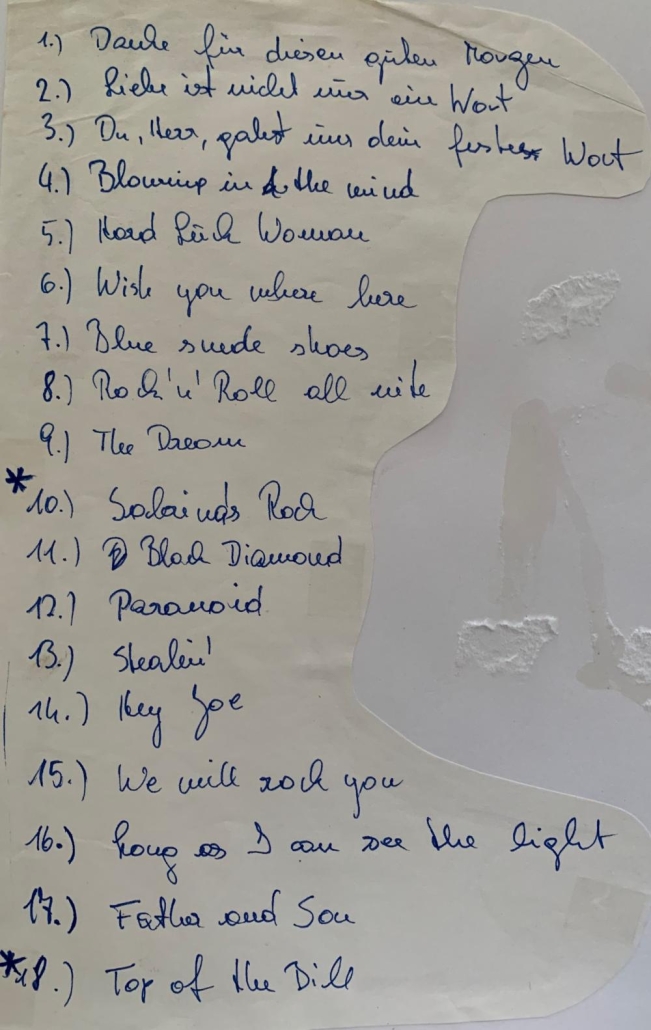 1.) Danke für diesen guten Morgen
2.) Liebe ist nicht nur ein Wort
3.) Du, Herr, gabst uns dein festes Wort
4.) Blowing in the wind
5.) Hard Lück Woman
6.) Wish you where here
7.) Blue suede shoes
8.) Rock'n'Roll all nite
9.) The Dream
* 10.) Rock
11.) Black Diamond
12.) Paranoid
13.) Stealin'
14.) Hey Joe
15.) We will rock you
16.) Long as I can see the light
17.) Father and Son
* 18.) Top of the Bill